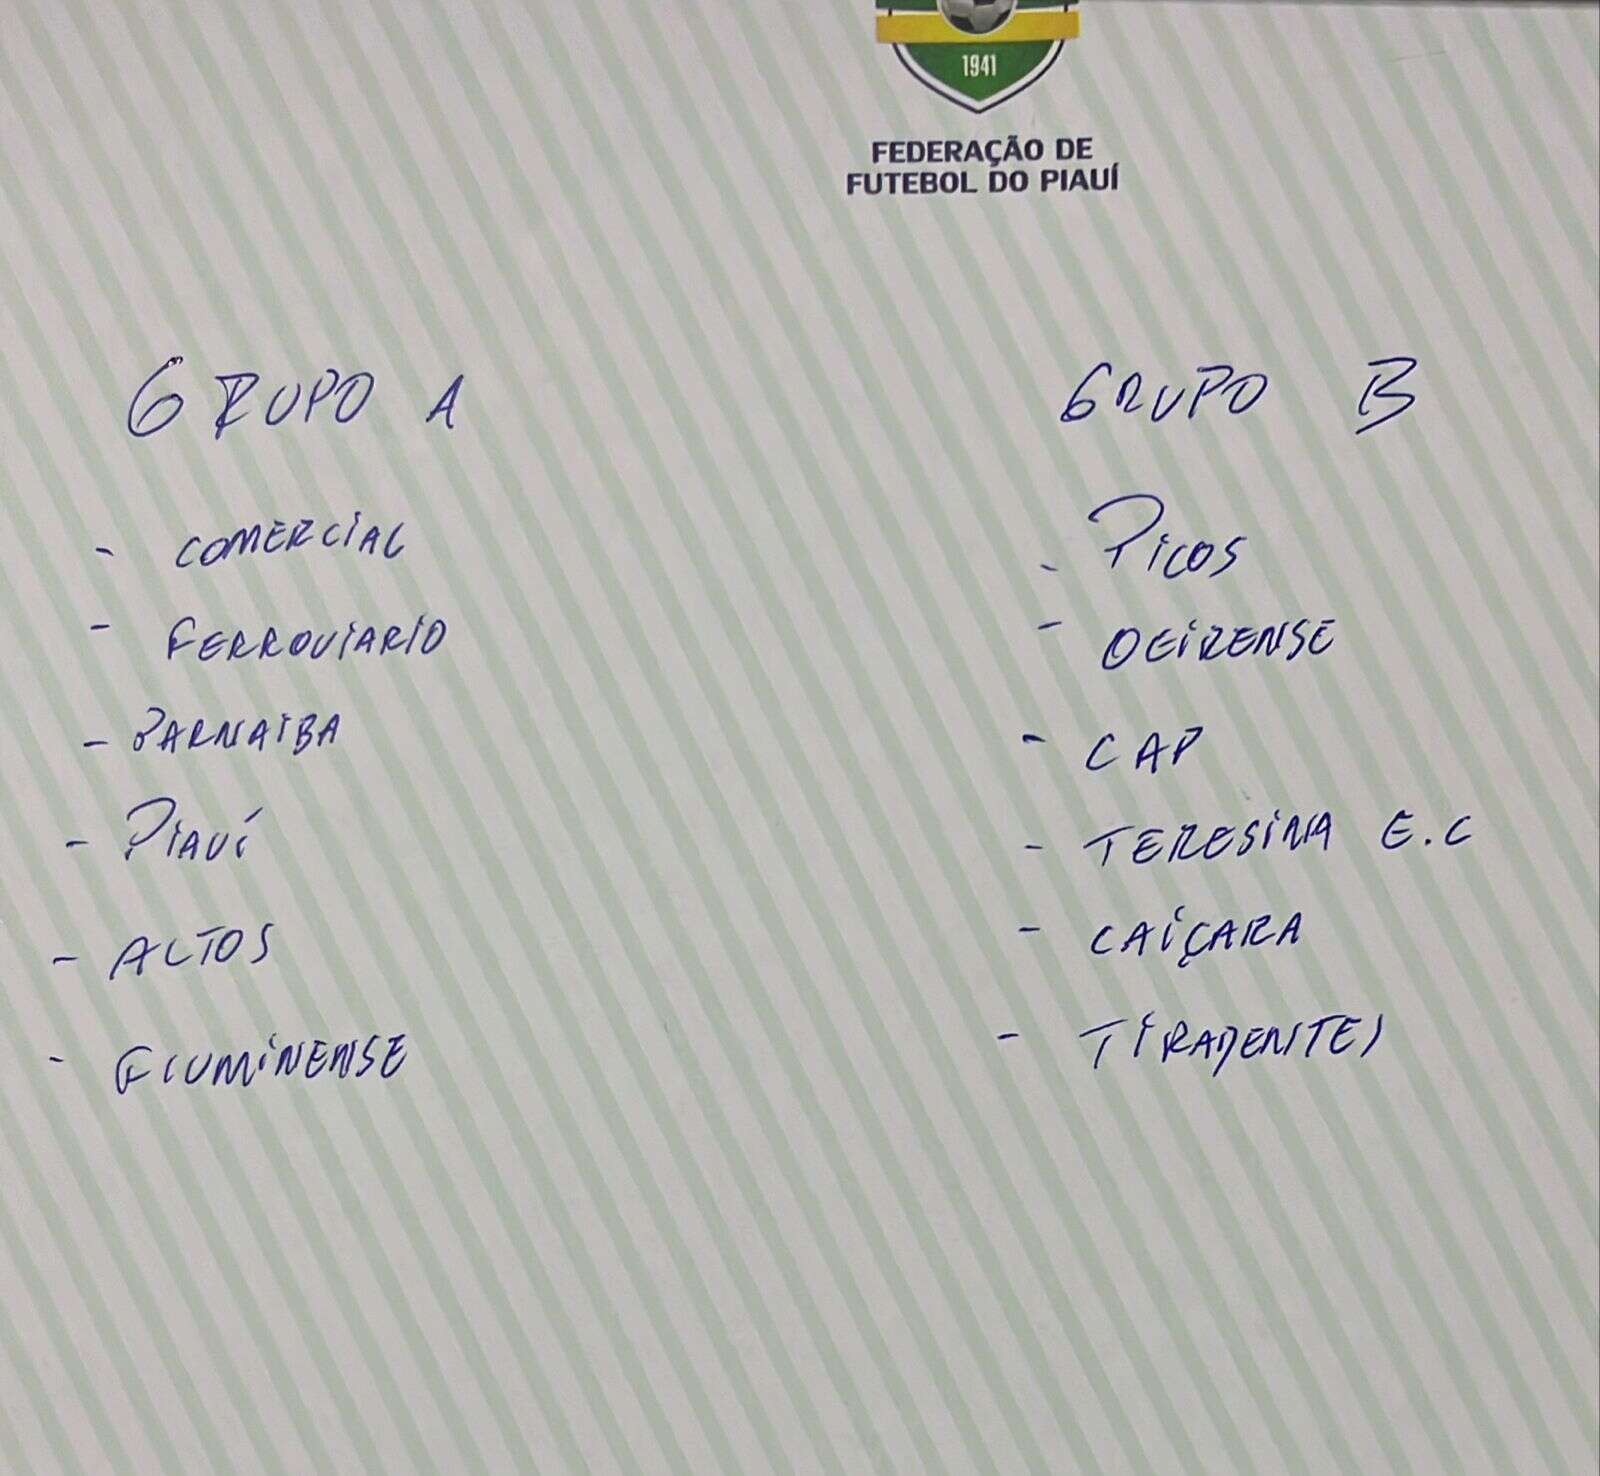 1941
FEDERAÇÃO DE
FUTEBOL DO PIAUÍ
GRUPO A
- COMERCIAL
- FERROVIARIO
- PARNAIBA
- PIAUÍ
- ALTOS
- FLUMINENSE
GRUPO B
- PICOS
- OEIRENSE
- CAP
- TERESINA E.C
- CAIÇARA
- TIRADENTES